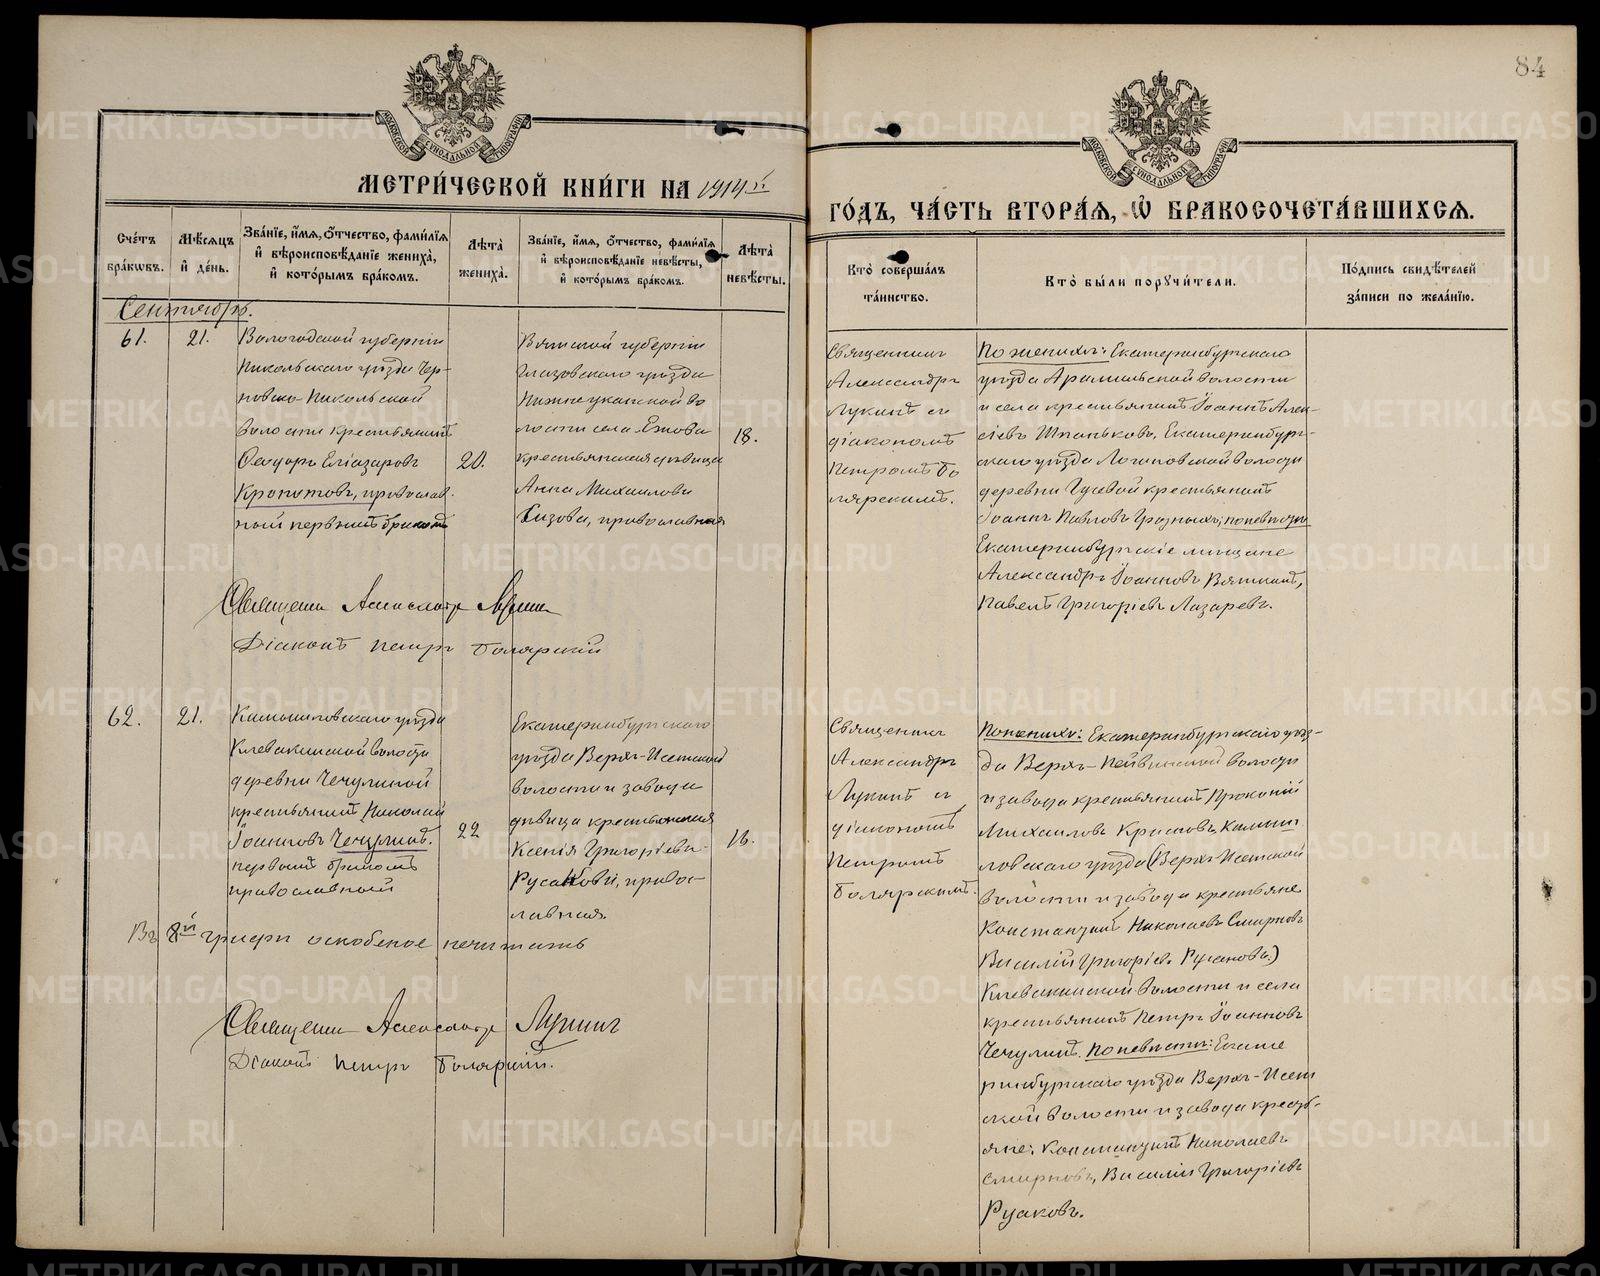 84
МЕТРИЧЕСКОЙ КНИГИ НА 1914й
ГОДЪ, ЧАСТЬ ВТОРАЯ, Ѡ БРАКОСОЧЕТАВШИХСЯ.
Счетъ браковъ.
Мѣсяцъ и день.
Званіе, имя, отчество, фамилія и вѣроисповѣданіе жениха, и которымъ бракомъ.
Лѣта жениха.
Званіе, имя, отчество, фамилія и вѣроисповѣданіе невѣсты, и которымъ бракомъ.
Лѣта невѣсты.
Кто совершалъ таинство.
Кто были поручители.
Подпись свидѣтелей записи по желанію.
Сентябрь.
61.
21.
Вологодской губерніи
Никольскаго уѣзда Чер-
новско-Никольской
волости крестьянинъ
Ѳеодоръ Еліазаровъ
Кропотовъ, православ-
ный первымъ бракомъ
20.
Вятской губерніи
Глазовскаго уѣзда
Нижнеукамской во
лости села Ежова
крестьянская дѣвица
Анна Михаилова
Бизова, православная
18.
Священникъ
Александръ
Лукинъ съ
діакономъ
Петромъ Бо
лярскимъ.
По женихѣ: Екатеринбургскаго
уѣзда Арамильской волости
и села крестьянинъ Іоаннъ Алек-
сіевъ Шпаньковъ, Екатеринбург-
скаго уѣзда Логиновской волости
деревни Гусевой крестьянинъ
Іоаннъ Павловъ Грозныхъ; по невѣстѣ
Екатеринбургскіе мѣщане
Александръ Іоанновъ Вяткинъ,
Павелъ Григоріевъ Лазаревъ.
Священникъ Александръ Лукинъ
Діаконъ Петръ Болярскій
62.
21.
Камышловскаго уѣзда
Клевакинской волости
деревни Чечулиной
крестьянинъ Николай
Іоанновъ Чечулинъ.
первымъ бракомъ
православный
22
Екатеринбургскаго
уѣзда Верхъ-Исетской
волости и завода
дѣвица крестьянская
Ксенія Григоріева
Русакова, правос-
лавная.
16.
Священникъ
Александръ
Лукинъ съ
діакономъ
Петромъ
Болярскимъ.
По женихѣ: Екатеринбургскаго уѣз-
да Верхъ-Нейвинской волости
и завода крестьянинъ Прокопій
Михаиловъ Кристовъ, Камыш
ловскаго уѣзда (Верхъ-Исетской
волости и завода крестьяне
Константинъ Николаевъ Смирновъ
Василій Григоріевъ Русаковъ)
Клевакинской волости и села
крестьянинъ Петръ Іоанновъ
Чечулинъ. По невѣстѣ: Екате
ринбургскаго уѣзда Верхъ-Исет
ской волости и завода кресть-
яне: Константинъ Николаевъ
Смирновъ, Василій Григоріевъ
Русаковъ.
Въ 8й графѣ оскобеное нечитать
Священникъ Александръ Лукинъ
Діаконъ Петръ Болярскій.
METRIKI.GASO-URAL.RU